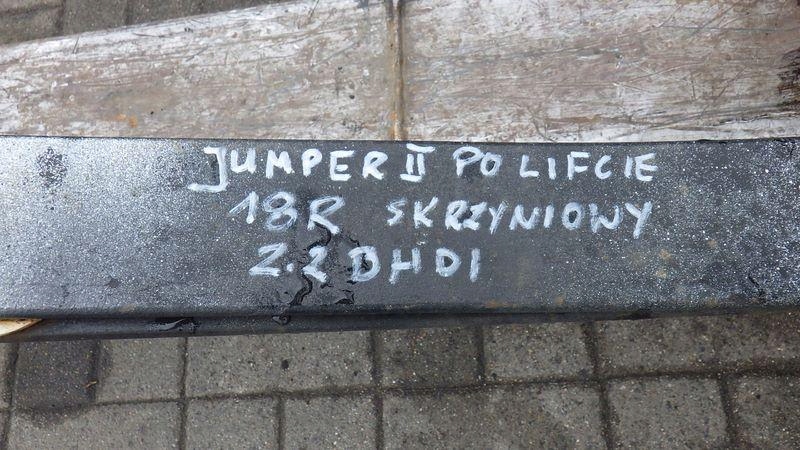 JUMPER II PO LIFCIE
18R SKRZYNIOWY
2.2 BHDI